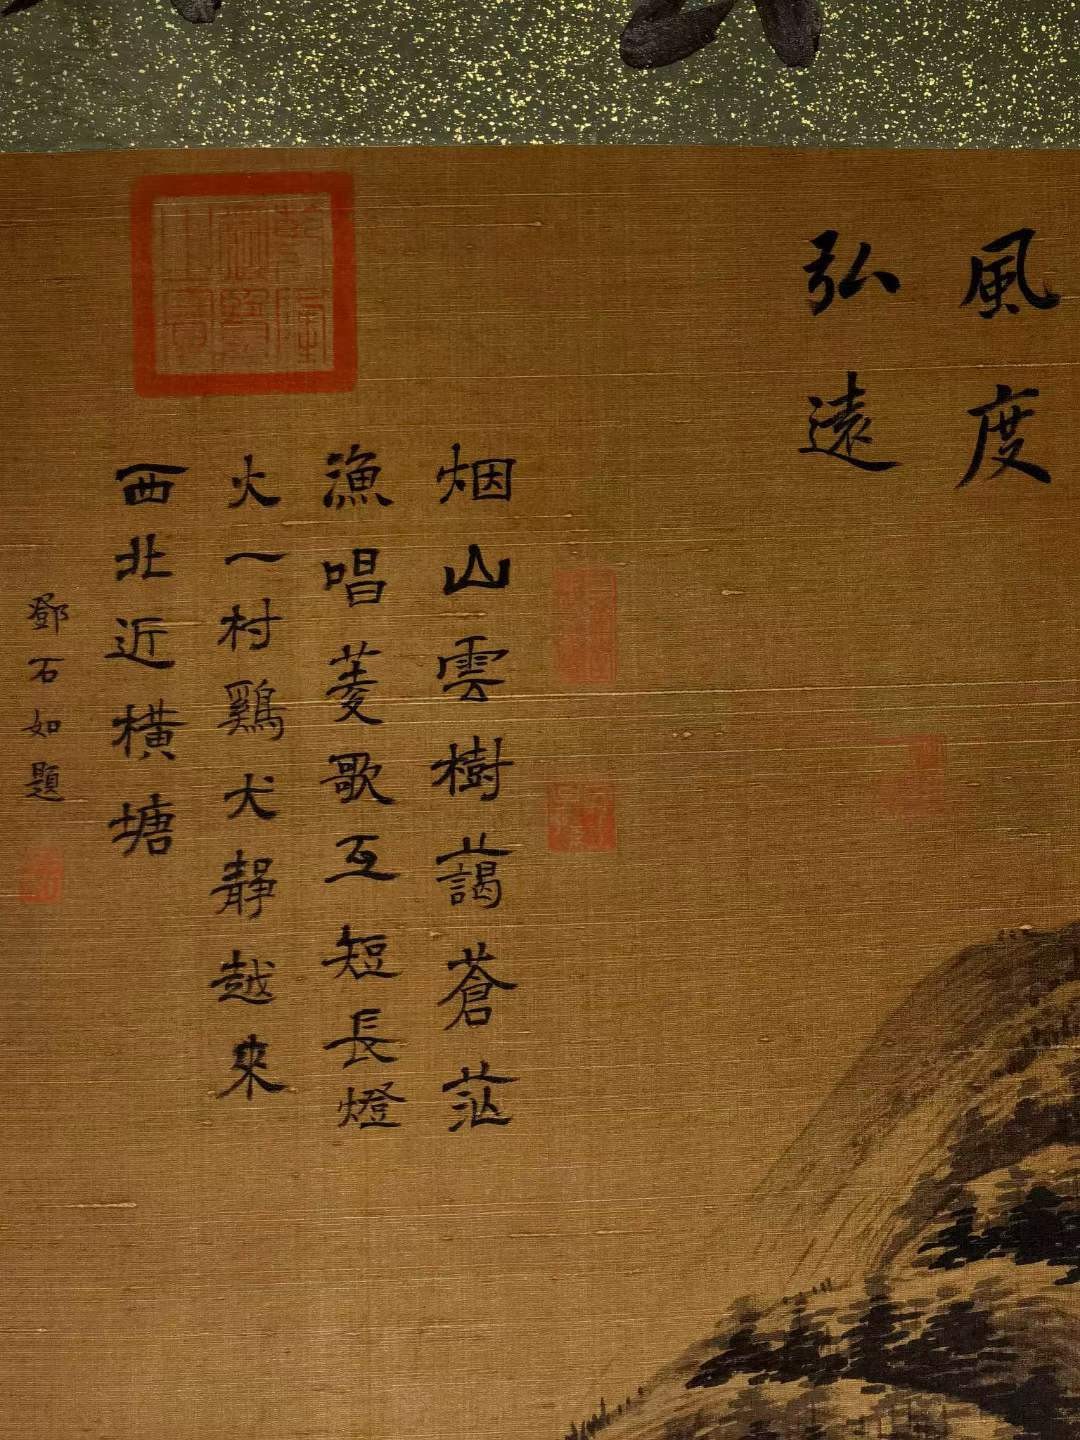 風度
弘遠
烟山雲樹藹蒼茫
漁唱菱歌互短長燈
火一村鷄犬靜越來
西北近橫塘
鄧石如題
乾隆
御覽
之寶